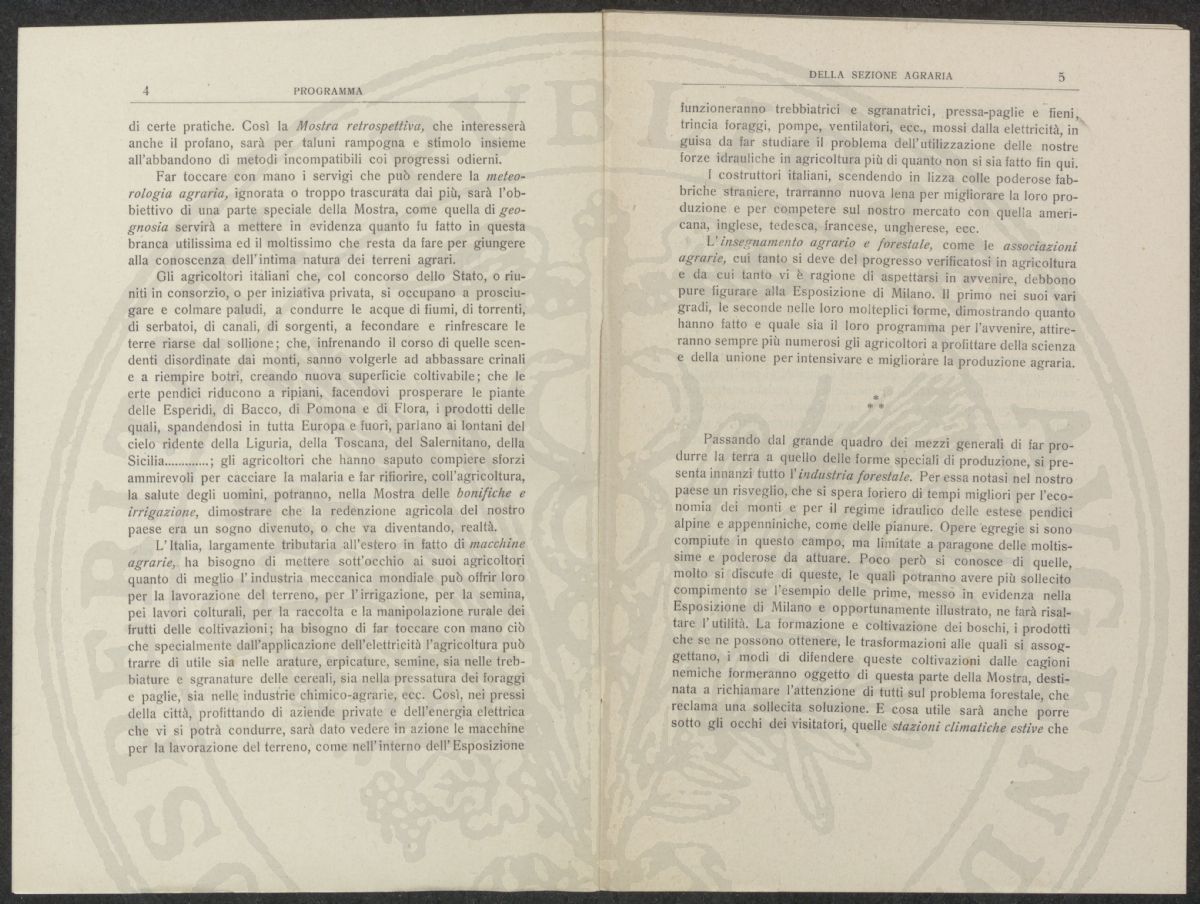 4 PROGRAMMA
di certe pratiche. Così la Mostra retrospettiva, che interesserà
anche il profano, sarà per taluni rampogna e stimolo insieme
all'abbandono di metodi incompatibili coi progressi odierni.
Far toccare con mano i servigi che può rendere la meteo-
rologia agraria, ignorata o troppo trascurata dai più, sarà l'ob-
biettivo di una parte speciale della Mostra, come quella di geo-
gnosia servirà a mettere in evidenza quanto fu fatto in questa
branca utilissima ed il moltissimo che resta da fare per giungere
alla conoscenza dell'intima natura dei terreni agrari.
Gli agricoltori italiani che, col concorso dello Stato, o riu-
niti in consorzio, o per iniziativa privata, si occupano a prosciu-
gare e colmare paludi, a condurre le acque di fiumi, di torrenti,
di serbatoi, di canali, di sorgenti, a fecondare e rinfrescare le
terre riarse dal sollione; che, infrenando il corso di quelle scen-
denti disordinate dai monti, sanno volgerle ad abbassare crinali
e a riempire botri, creando nuova superficie coltivabile; che le
erte pendici riducono a ripiani, facendovi prosperare le piante
delle Esperidi, di Bacco, di Pomona e di Flora, i prodotti delle
quali, spandendosi in tutta Europa e fuori, parlano ai lontani del
cielo ridente della Liguria, della Toscana, del Salernitano, della
Sicilia.............; gli agricoltori che hanno saputo compiere sforzi
ammirevoli per cacciare la malaria e far rifiorire, coll'agricoltura,
la salute degli uomini, potranno, nella Mostra delle bonifiche e
irrigazione, dimostrare che la redenzione agricola del nostro
paese era un sogno divenuto, o che va diventando, realtà.
L'Italia, largamente tributaria all'estero in fatto di macchine
agrarie, ha bisogno di mettere sott'occhio ai suoi agricoltori
quanto di meglio l'industria meccanica mondiale può offrir loro
per la lavorazione del terreno, per l'irrigazione, per la semina,
pei lavori colturali, per la raccolta e la manipolazione rurale dei
frutti delle coltivazioni; ha bisogno di far toccare con mano ciò
che specialmente dall'applicazione dell'elettricità l'agricoltura può
trarre di utile sia nelle arature, erpicature, semine, sia nelle treb-
biature e sgranature delle cereali, sia nella pressatura dei foraggi
e paglie, sia nelle industrie chimico-agrarie, ecc. Così, nei pressi
della città, profittando di aziende private e dell'energia elettrica
che vi si potrà condurre, sarà dato vedere in azione le macchine
per la lavorazione del terreno, come nell'interno dell'Esposizione
DELLA SEZIONE AGRARIA 5
funzioneranno trebbiatrici e sgranatrici, pressa-paglie e fieni,
trincia foraggi, pompe, ventilatori, ecc., mossi dalla elettricità, in
guisa da far studiare il problema dell'utilizzazione delle nostre
forze idrauliche in agricoltura più di quanto non si sia fatto fin qui.
I costruttori italiani, scendendo in lizza colle poderose fab-
briche straniere, trarranno nuova lena per migliorare la loro pro-
duzione e per competere sul nostro mercato con quella ameri-
cana, inglese, tedesca, francese, ungherese, ecc.
L'insegnamento agrario e forestale, come le associazioni
agrarie, cui tanto si deve del progresso verificatosi in agricoltura
e da cui tanto vi è ragione di aspettarsi in avvenire, debbono
pure figurare alla Esposizione di Milano. Il primo nei suoi vari
gradi, le seconde nelle loro molteplici forme, dimostrando quanto
hanno fatto e quale sia il loro programma per l'avvenire, attire-
ranno sempre più numerosi gli agricoltori a profittare della scienza
e della unione per intensivare e migliorare la produzione agraria.
*
* *
Passando dal grande quadro dei mezzi generali di far pro-
durre la terra a quello delle forme speciali di produzione, si pre-
senta innanzi tutto l'industria forestale. Per essa notasi nel nostro
paese un risveglio, che si spera foriero di tempi migliori per l'eco-
nomia dei monti e per il regime idraulico delle estese pendici
alpine e appenniniche, come delle pianure. Opere egregie si sono
compiute in questo campo, ma limitate a paragone delle moltis-
sime e poderose da attuare. Poco però si conosce di quelle,
molto si discute di queste, le quali potranno avere più sollecito
compimento se l'esempio delle prime, messo in evidenza nella
Esposizione di Milano e opportunamente illustrato, ne farà risal-
tare l'utilità. La formazione e coltivazione dei boschi, i prodotti
che se ne possono ottenere, le trasformazioni alle quali si assog-
gettano, i modi di difendere queste coltivazioni dalle cagioni
nemiche formeranno oggetto di questa parte della Mostra, desti-
nata a richiamare l'attenzione di tutti sul problema forestale, che
reclama una sollecita soluzione. E cosa utile sarà anche porre
sotto gli occhi dei visitatori, quelle stazioni climatiche estive che